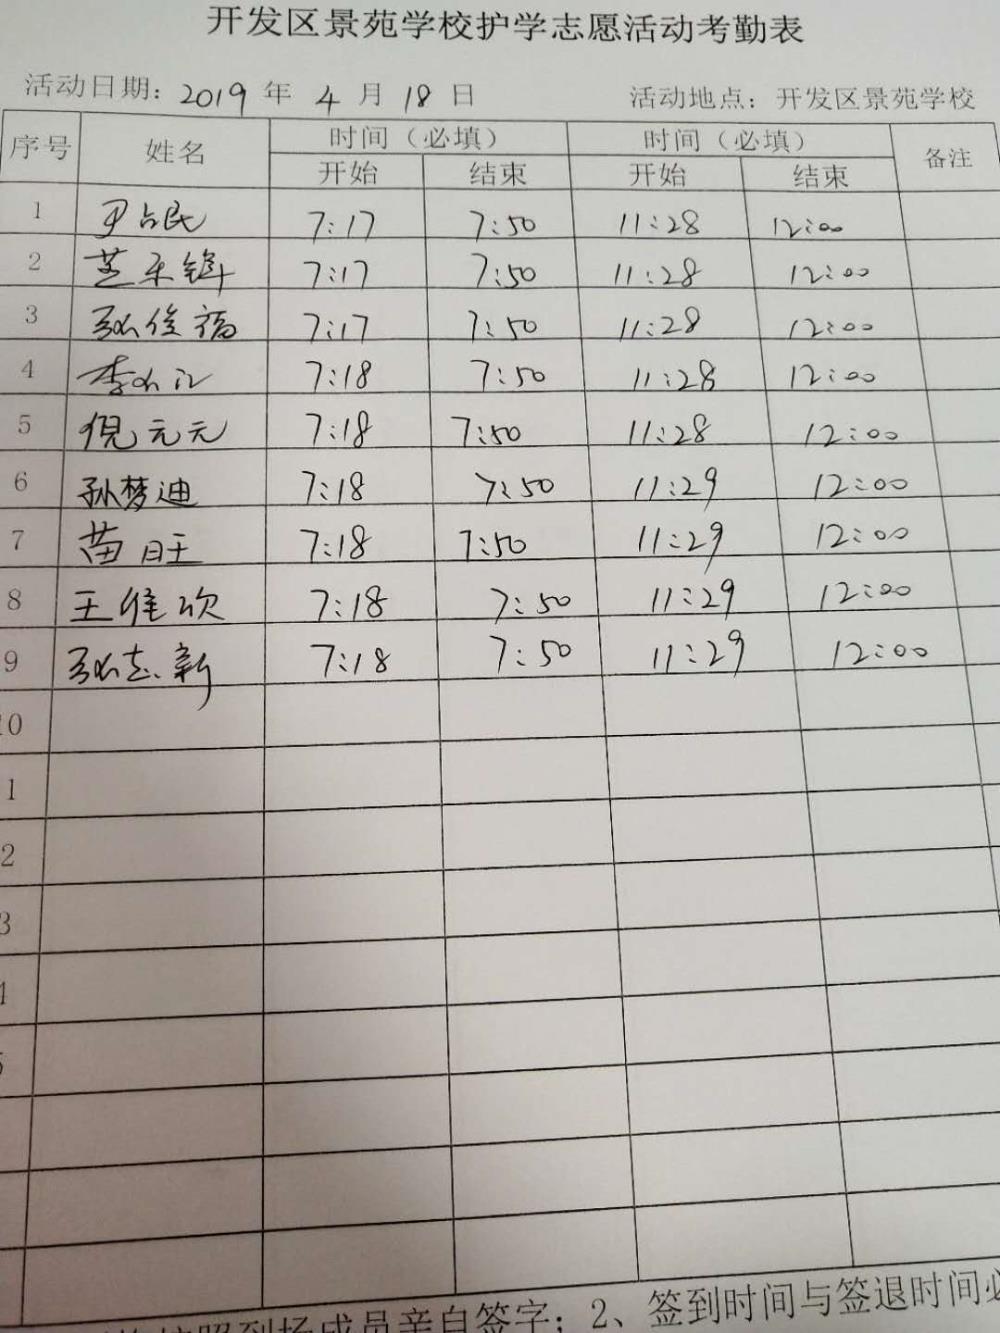 开发区景苑学校护学志愿活动考勤表
活动日期: 2019 年 4 月 18 日 活动地点: 开发区景苑学校
序号 姓名 时间（必填） 时间（必填） 备注
开始 结束 开始 结束
1 尹占民 7:17 7:50 11:28 12:00
2 7:17 7:50 11:28 12:00
3 孙俊福 7:17 7:50 11:28 12:00
4 7:18 7:50 11:28 12:00
5 倪元元 7:18 7:50 11:28 12:00
6 孙梦迪 7:18 7:50 11:29 12:00
7 苗旺 7:18 7:50 11:29 12:00
8 王维欣 7:18 7:50 11:29 12:00
9 孙志新 7:18 7:50 11:29 12:00
10
1
2
3
4
5
按照到场成员亲自签字; 2、签到时间与签退时间必